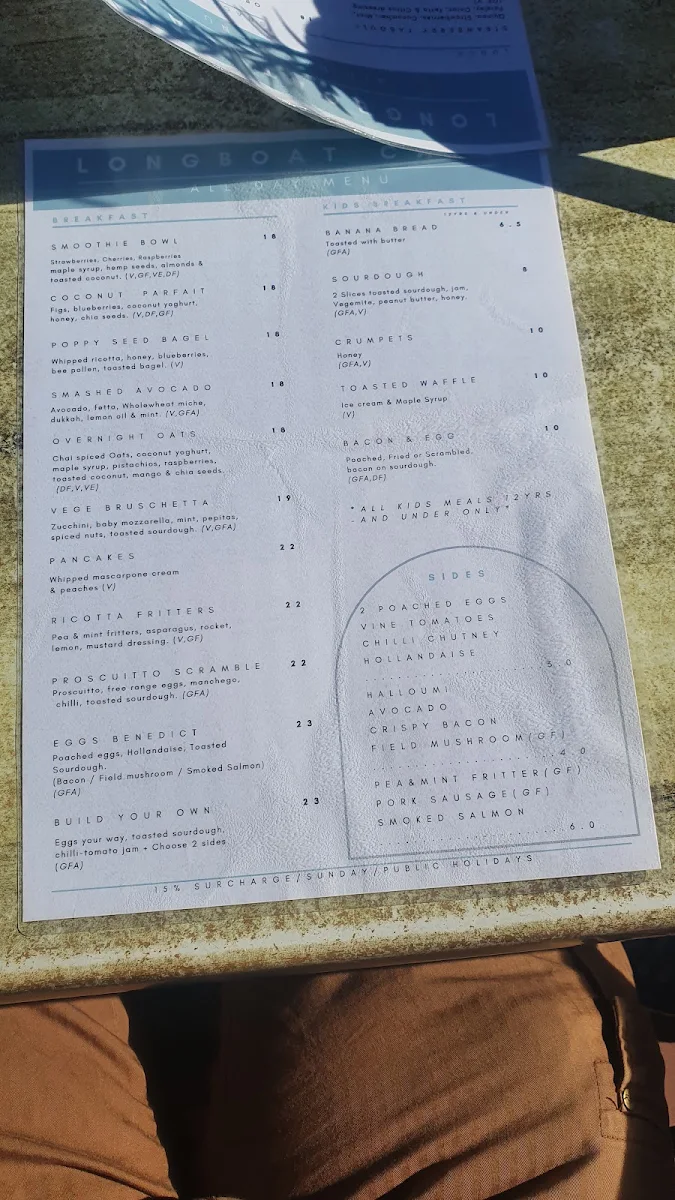 LONGBOAT CA
ALL DAY MENU
BREAKFAST
SMOOTHIE BOWL 18
Strawberries, Cherries, Raspberries
maple syrup, hemp seeds, almonds &
toasted coconut. (V,GF,VE,DF)
COCONUT PARFAIT 18
Figs, blueberries, coconut yoghurt,
honey, chia seeds. (V,DF,GF)
POPPY SEED BAGEL 18
Whipped ricotta, honey, blueberries,
bee pollen, toasted bagel. (V)
SMASHED AVOCADO 18
Avocado, fetta, Wholewheat miche,
dukkah, lemon oil & mint. (V,GFA)
OVERNIGHT OATS 18
Chai spiced Oats, coconut yoghurt,
maple syrup, pistachios, raspberries,
toasted coconut, mango & chia seeds.
(DF,V,VE)
VEGE BRUSCHETTA 19
Zucchini, baby mozzarella, mint, pepitas,
spiced nuts, toasted sourdough. (V,GFA)
PANCAKES 22
Whipped mascarpone cream
& peaches (V)
RICOTTA FRITTERS 22
Pea & mint fritters, asparagus, rocket,
lemon, mustard dressing. (V,GF)
PROSCUITTO SCRAMBLE 22
Proscuitto, free range eggs, manchego,
chilli, toasted sourdough. (GFA)
EGGS BENEDICT 23
Poached eggs, Hollandaise, Toasted
Sourdough.
(Bacon / Field mushroom / Smoked Salmon)
(GFA)
BUILD YOUR OWN 23
Eggs your way, toasted sourdough,
chilli-tomato jam + Choose 2 sides
(GFA)
KIDS BREAKFAST
12YRS & UNDER
BANANA BREAD 6.5
Toasted with butter
(GFA)
SOURDOUGH 8
2 Slices toasted sourdough, jam,
Vegemite, peanut butter, honey.
(GFA,V)
CRUMPETS 10
Honey
(GFA,V)
TOASTED WAFFLE 10
Ice cream & Maple Syrup
(V)
BACON & EGG 10
Poached, Fried or Scrambled,
bacon on sourdough.
(GFA,DF)
*ALL KIDS MEALS 12YRS
-AND UNDER ONLY*
SIDES
2 POACHED EGGS
VINE TOMATOES
CHILLI CHUTNEY
HOLLANDAISE
..........................3.0
HALLOUMI
AVOCADO
CRISPY BACON
FIELD MUSHROOM(GF)
..........................4.0
PEA&MINT FRITTER(GF)
PORK SAUSAGE(GF)
SMOKED SALMON
..........................6.0
15% SURCHARGE/SUNDAY/PUBLIC HOLIDAYS